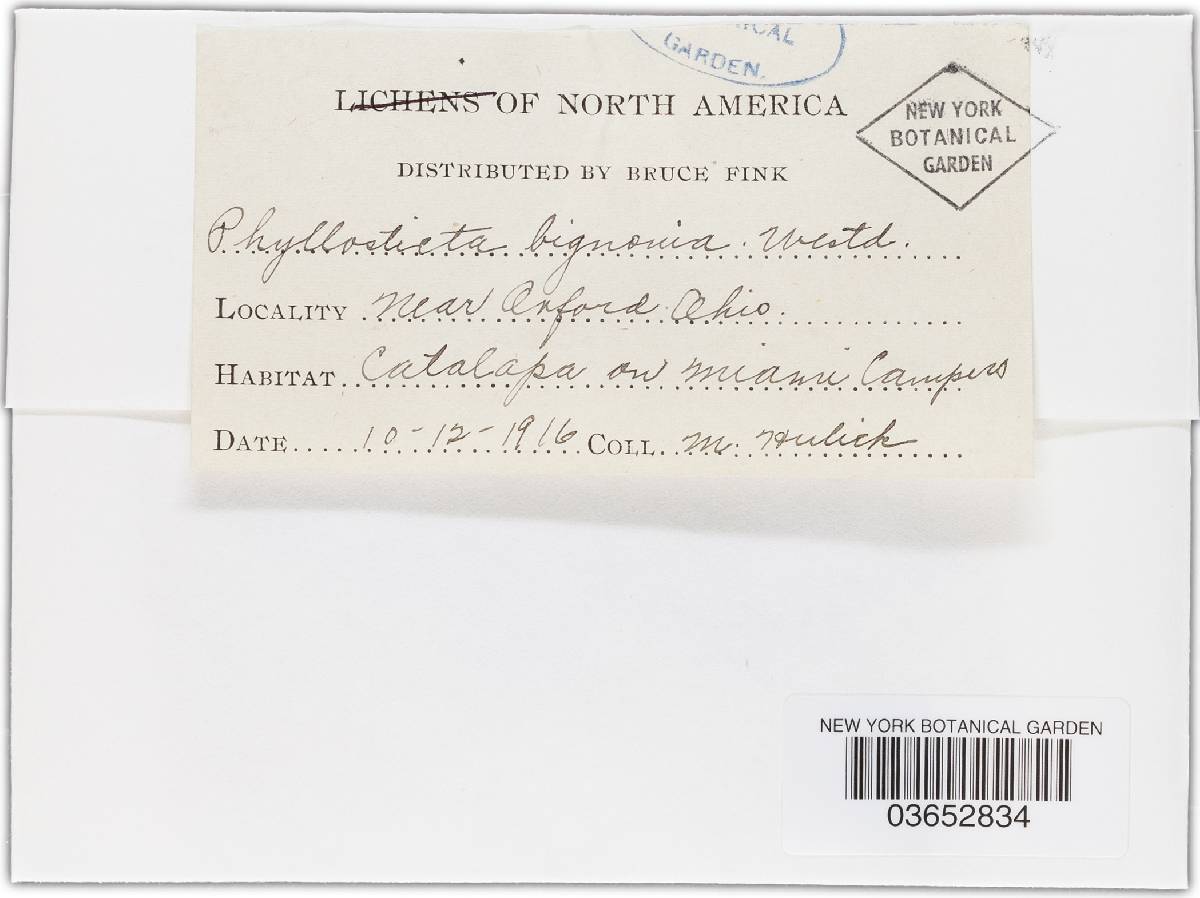 ICAL
GARDEN.
LICHENS OF NORTH AMERICA
NEW YORK
BOTANICAL
GARDEN
DISTRIBUTED BY BRUCE FINK
Phyllosticta bignonia. Westd.
LOCALITY Near Oxford Ohio.
HABITAT Catalapa on Miami Campers
DATE 10-12-1916 COLL. M. Hulick
NEW YORK BOTANICAL GARDEN
03652834